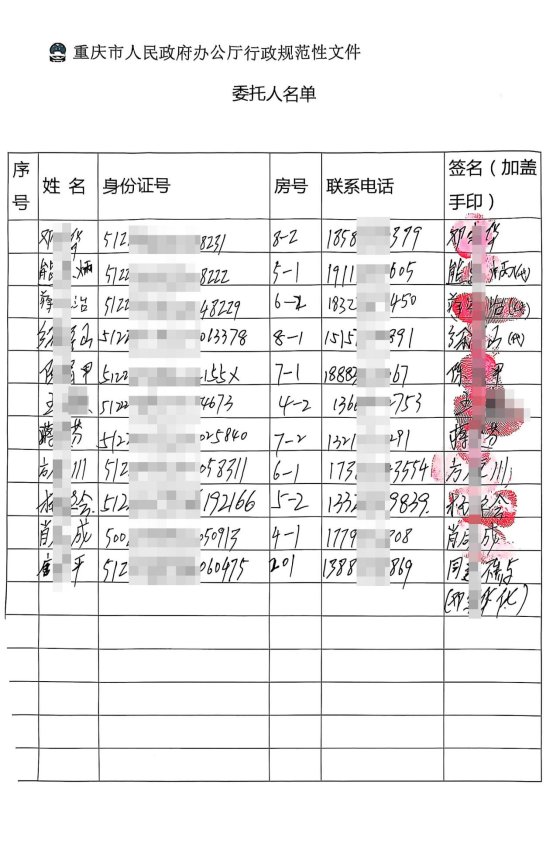 重庆市人民政府办公厅行政规范性文件
委托人名单
序号 姓名 身份证号 房号 联系电话 签名（加盖手印）
邓 华 512 8231 8-2 1858 379 邓 华
熊 炳 5122 8222 5-1 1911 605 熊 炳(代)
蒋 治 5122 48229 6-2 1832 450 蒋 治(代)
徐 512 063378 8-1 1515 891 徐 (代)
甲 5120 155X 7-1 1888 67 甲
王 5122 4673 4-2 136 2753 王
蒋 芳 5122 025840 7-2 1321 291 蒋 芳
方 川 512 058311 6-1 173 3554 方 川
会 512 192166 5-2 1332 9839 会
肖 成 500 050913 4-1 1779 208 肖 成
唐 平 512 060475 201 1388 869 同
(邓 华代)